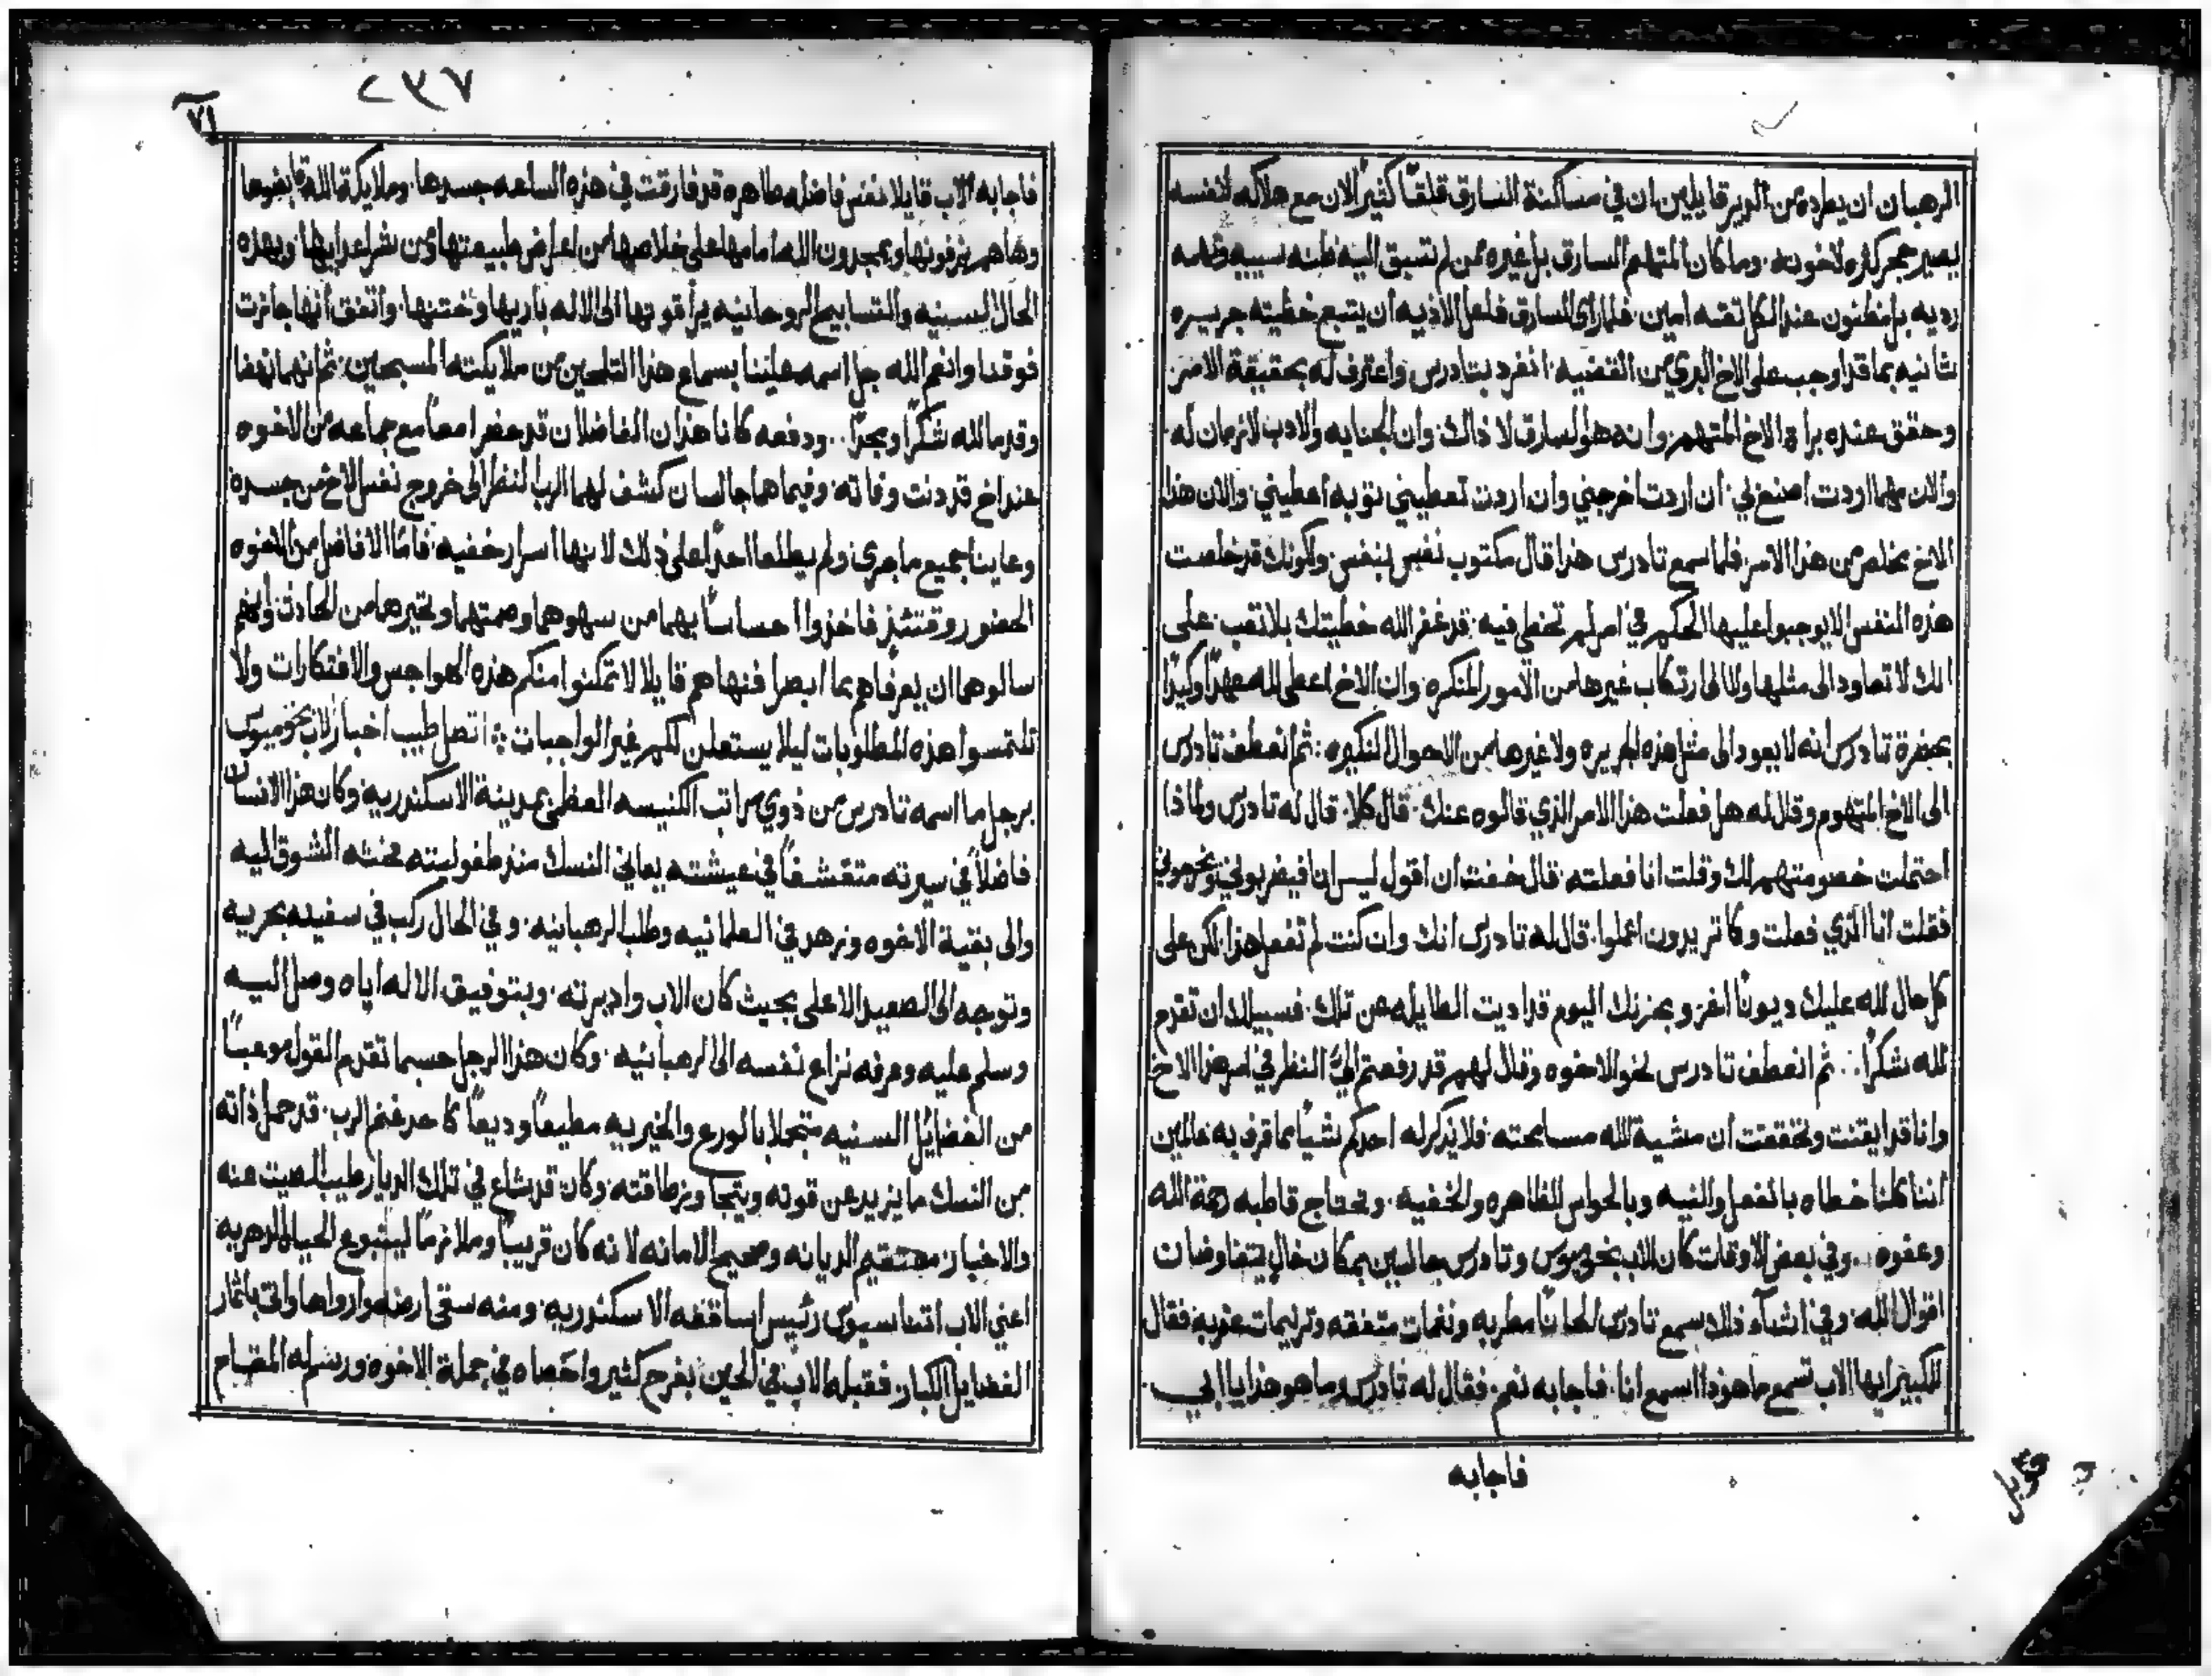 الرهبان ان يطرده من الدير قايلين ان في مساكنة السارق قلقًا كثيرًا لان مع هلاكه لنفسه
يصير حجر كفره لاخوته وما كان المتهم السارق بل غيره ممن لم تسبق اليه ظنه سيئه
رديه بل مظنون عند الكل ثقه امين فلما راى السارق فاعل الاذيه ان يتبع خطيته جريره
ثانيه بما قد اوجب على الاخ البري من القضيه انفرد بتادرس واعترف له بحقيقة الامر
وحقق عنده براة الاخ المتهم وانه هو السارق لا ذاك وان الجنايه والادب لازمان له
والان مهما اردت اصنع بي ان اردت اخرجني وان اردت تعطيني توبه اعطيني والان هذا
الاخ يخلص من هذا الامر فلما سمع تادرس هذا قال مكتوب نفس بنفس ولكونك قد خلصت
هذه النفس الا يوجبوا عليها الحكم في امر لم تخطي فيه قد غفر الله خطيتك بلا تعب على
انك لا تعاود الى مثلها ولا الى ارتكاب غيرها من الامور المنكره وان الاخ اعطى لله عهدًا وكيدًا
بحضرة تادرس انه لا يعود الى مثل هذه الجريره ولا غيرها من الاحوال النكيره ثم انعطف تادرس
الى الاخ المتهوم وقال له هل فعلت هذا الامر الذي قالوه عنك قال كلا قال له تادرس ولماذا
احتملت خصومتهم لك وقلت انا فعلته قال خفت ان اقول ليس انا فيضربوني ويخرجوني
فقلت انا الذي فعلت وكما تريدون اعملوا قال له تادرس انك وان كنت لم تفعل هذا لكن على
كل حال لله عليك ديونًا اخر وبحزنك اليوم قد اديت الطايله عن تلك فسبيلك ان تقدم
لله شكرًا ثم انعطف تادرس نحو الاخوه وقال لهم قد رفعتم اليّ النظر في امر هذا الاخ
وانا قد ايقنت وتحققت ان مشية الله مسامحته فلا يذكر له احدكم شيًا مما قرف به عالمين
اننا كلنا خطاه بالفعل والنيه وبالحواس الظاهره والخفيه ونحتاج قاطبه رحمة الله
وعفوه وفي بعض الاوقات كان الاب بخوميوس وتادرس جالسين بمكان خالٍ يتفاوضان
اقوال الله وفي اثنآء ذلك سمع تادرس الحانًا مطربه ونغمات متفقه وترنيمات عذبه فقال
للكبير ايها الاب تسمع ما هوذا اسمع انا فاجابه نعم فقال له تادرس وما هو هذا يا ابي
فاجابه
قوبل
٧٣٢
٧١
فاجابه الاب قايلا نفس فاضله طاهره قد فارقت في هذه الساعه جسدها وملايكة الله
وها هم يزفونها ويمجدون الله امامها على خلاصها من اعراض طبيعتها ومن شر اعدايها وبهذه
الحال السنيه والتسابيح الروحانيه يرافقونها الى الاله باريها وختنها واتفق انها جازت
فوقنا وانعم الله جل اسمه علينا بسماع هذا التلحين من ملايكته المسبحين ثم انهما نهضا
وقدما لله شكرًا ومجدًا ودفعه كانا هذان الفاضلان قد حضرا معًا مع جماعه من الاخوه
عند اخ قد دنت وفاته وفيما هما جالسان كشف لهما الرب النظر الى خروج نفس الاخ من جسده
وعاينا جميع ما جرى ولم يطلعا احدًا على ذلك لانها اسرار خفيه فامّا الافاضل من الاخوه
الحضور وقتئذٍ فاخذوا احساسًا بهما من سهوهما وصمتهما وتحيرهما من الحادث وانهم
سالوهما ان يعرفاهم بما ابصرا فنهاهم قايلا لا تمكنوا منكم هذه الهواجس والافتكارات ولا
تلتمسوا هذه المطلوبات ليلا يستعلن لكم غير الواجبات اتصل طيب اخبار الاب بخوميوس
برجل ما اسمه تادرس من ذوي مراتب الكنيسه العظمى بمدينة الاسكندريه وكان هذا الانسان
فاضلاً في سيرته متقشفًا في عيشته يعاني النسك منذ طفوليته فحثه الشوق اليه
والى بقية الاخوه وزهد في العلمانيه وطلب الرهبانيه وفي الحال ركب في سفينه بحريه
وتوجه الى الصعيد الاعلى بحيث كان الاب واديرته وبتوفيق الاله اياه وصل اليه
وسلم عليه وعرفه نزاع نفسه الى الرهبانيه وكان هذا الرجل حسبما تقدم القول موعبًا
من الفضايل السنيه متجلببا بالورع والخيريه مطيعًا وديعًا كاحد غنم الرب قد حمل ذاته
من النسك ما يزيد عن قوته ويتجاوز طاقته وكان قد شاع في تلك الديار طيب الصيت عنه
والاخبار مستقيم الديانه وصحيح الامانه لانه كان قريبًا وملازمًا لينبوع الحياه الدهريه
اعني الاب اتناسيوس رئيس اساقفة الاسكندريه ومنه سقى ارضه وارواها واتى باثمار
الفضايل الكبار فقبله الاب في الحين بفرح كثير واحصاه في جملة الاخوه ورسم له المقام